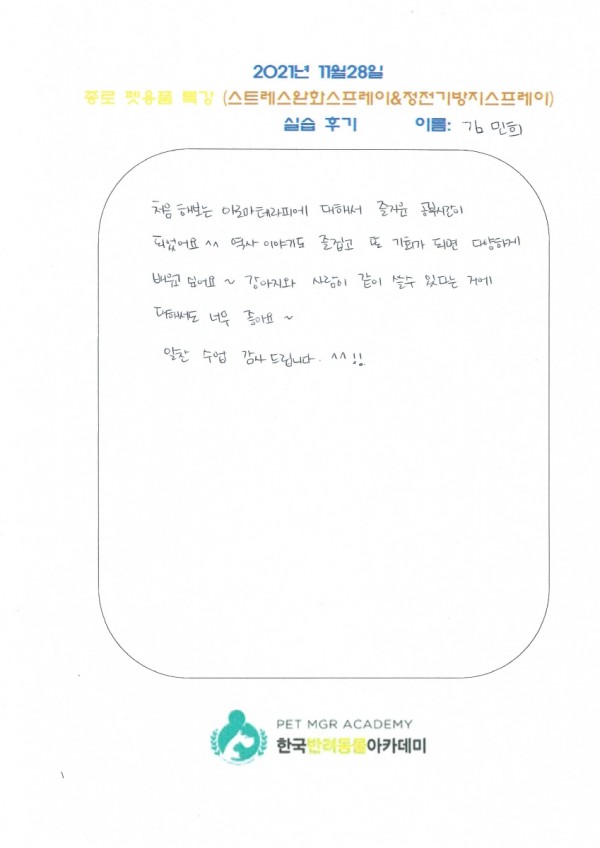 2021년 11월28일
종로 펫용품 특강 (스트레스완화스프레이&정전기방지스프레이)
실습 후기 이름: 김민희
처음 해보는 아로마테라피에 대해서 즐거운 공부시간이
되었어요 ^^ 역사 이야기도 즐겁고 또 기회가 되면 다양하게
배우고 싶어요~ 강아지와 사람이 같이 쓸수 있다는 거에
대해서도 너무 좋아요~
알찬 수업 감사드립니다. ^^!!
PET MGR ACADEMY
한국반려동물아카데미